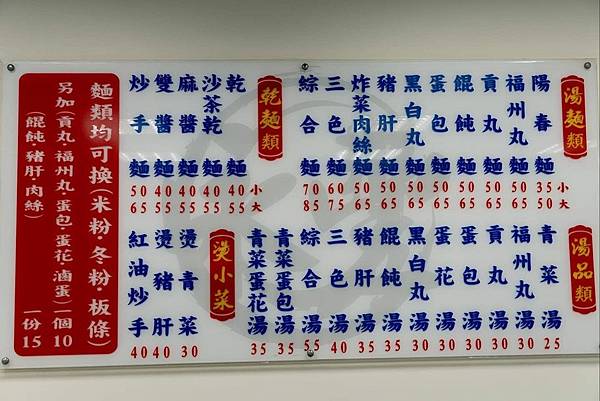 湯麵類
陽春麵 35 50
福州丸麵 50 65
貢丸麵 50 65
餛飩麵 50 65
蛋包麵 50 65
黑白丸麵 50 65
豬肝麵 50 65
炸菜肉絲麵 50 65
三色麵 60 75
綜合麵 70 85
小 大
乾麵類
乾麵 40 55
沙茶乾麵 40 55
麻醬麵 40 55
雙醬麵 40 55
炒手麵 50 65
小 大
湯品類
青菜湯 25
福州丸湯 30
貢丸湯 30
蛋包湯 30
蛋花湯 30
黑白丸湯 30
餛飩湯 35
豬肝湯 35
三色湯 40
綜合湯 55
青菜蛋包湯 35
青菜蛋花湯 35
燙小菜
燙青菜 30
燙豬肝 40
紅油炒手 40
麵類均可換(米粉·冬粉·板條)
另加(貢丸·福州丸·蛋包·蛋花·滷蛋)一個10
(餛飩·豬肝·肉絲)一份15